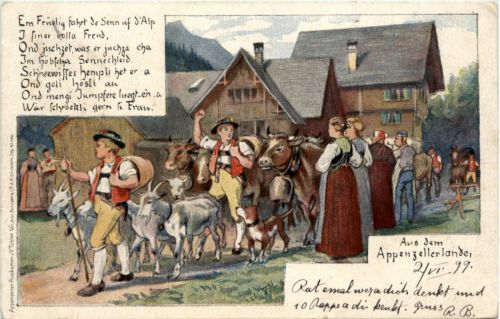 Em Früelig fahrt de Senn uf d'Alp
I siner volla Freud,
Ond juchzet, was er juchza cha
Im hobscha Sennechleid.
Schneewisses hempli het er a
Ond geli hösli au
Ond mengi Jumpfere luegt-en-a
War schröckli gern si Frau.
Aus dem
Appenzellerlande.
2/VI. 99.
Rat emal wer a dich denkt und
10 Rappe a di henkt. Gruss
R. B.